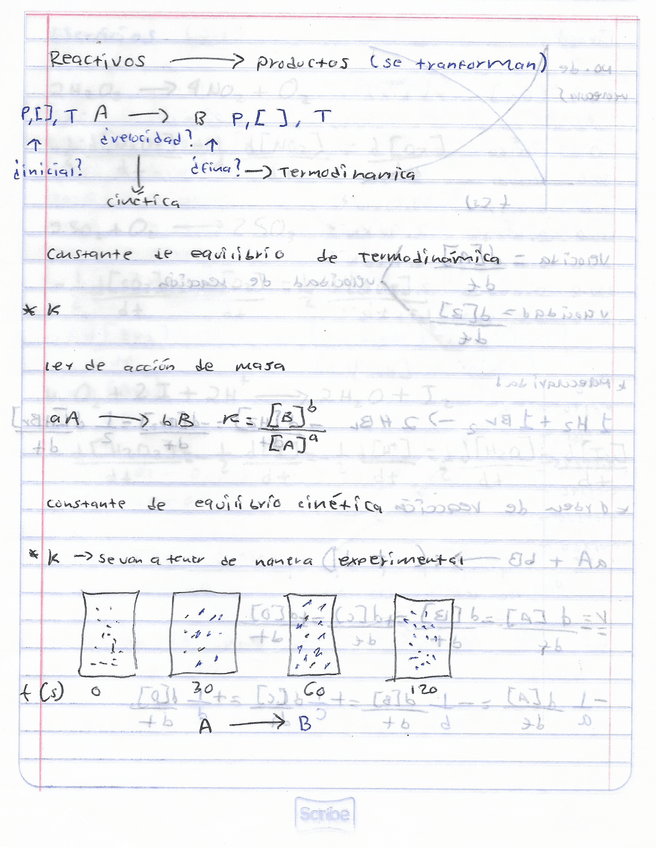 Reactivos ⟶ productos (se tranforman)
P,[ ], T A ⟶ B P,[ ], T
¿velocidad?
¿inicial? ¿final? → Termodinamica
cinética
constante de equilibrio de Termodinámica
* K
Ley de acción de masa
aA ⟶ bB K = [B]^b / [A]^a
constante de equilibrio cinética
* K → se van a tener de manera (experimental
t (s) 0 30 60 120
A ⟶ B
Scribe